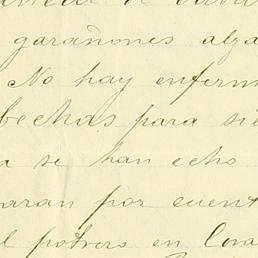 garañones alza
No hay enferm
bechas para sie
a se han echo
aran por cuent
l potrero en Cora